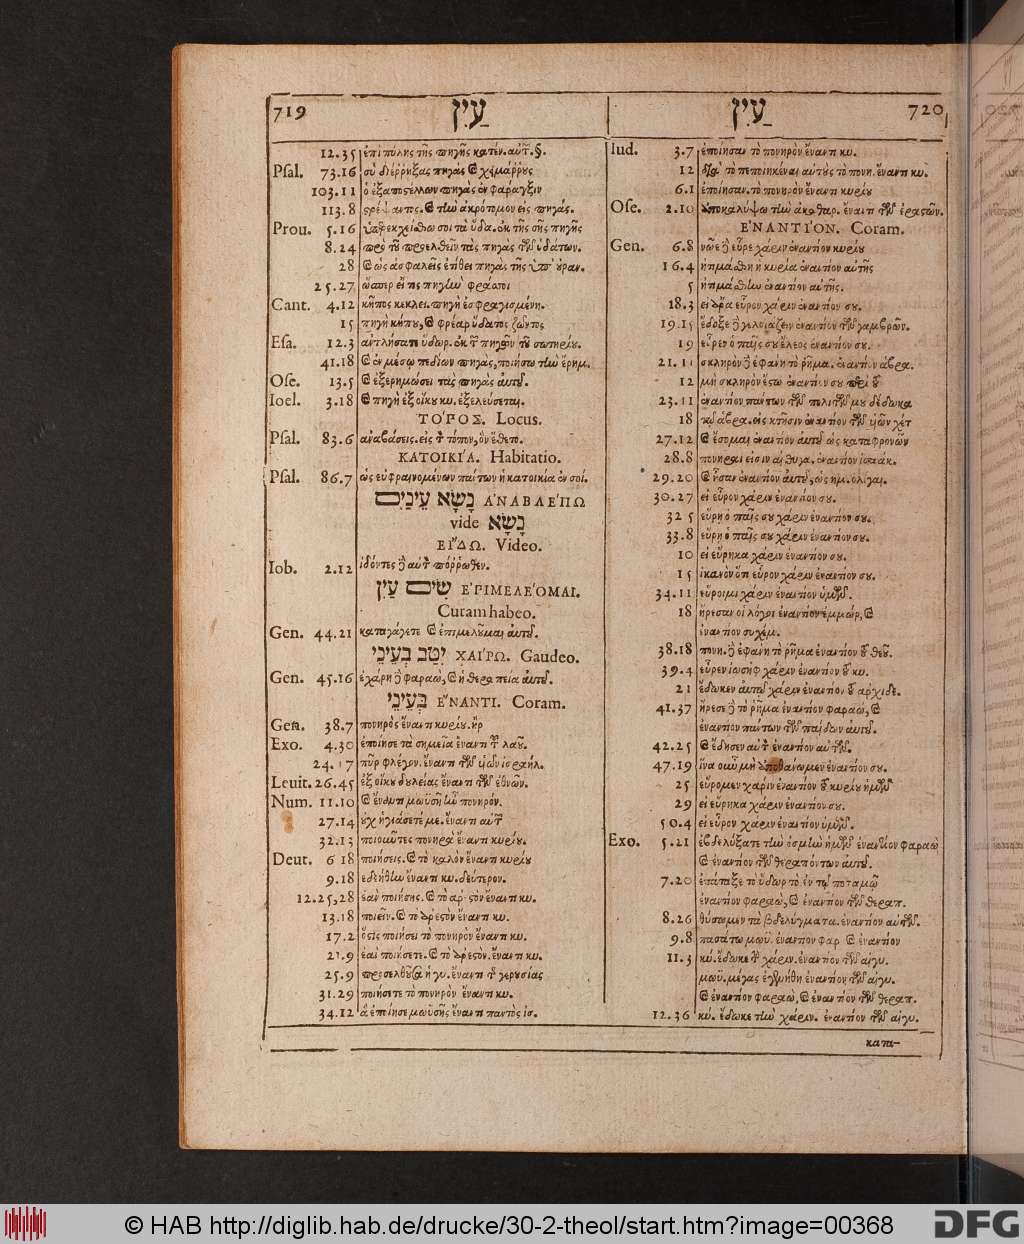 719 עַיִן
12.35 ἐπὶ πύλης τῆς πηγῆς κατέν. αὐτ. §.
Psal. 73.16 σὺ διέῤῥηξας πηγὰς καὶ χειμάῤῥους
103.11 ὁ ἐξαποστέλλων πηγὰς ἐν φάραγξιν
113.8 στρέψαντος. καὶ τὴν ἀκρότομον εἰς πηγάς.
Prou. 5.16 ὑπερεκχείσθω σοι τὰ ὕδα. ἐκ τῆς σῆς πηγῆς
8.24 πρὸ τοῦ προελθεῖν τὰς πηγὰς τῶν ὑδάτων.
28 καὶ ὡς ἀσφαλεῖς ἐτίθει πηγὰς τῆς ὑπ' οὐραν.
25.27 ὥσπερ εἴ τις πηγὴν φράσσοι
Cant. 4.12 κῆπος κεκλει. πηγὴ ἐσφραγισμένη.
15 πηγὴ κήπου, καὶ φρέαρ ὕδατος ζῶντος
Esa. 12.3 ἀντλήσατε ὕδωρ. ἐκ τ πηγῶν τοῦ σωτηρίου.
41.18 καὶ ἐν μέσῳ πεδίων πηγὰς, ποιήσω τὴν ἔρημ.
Ose. 13.5 καὶ ἐξερημώσει τὰς πηγὰς αὐτοῦ.
Ioel. 3.18 καὶ πηγὴ ἐξ οἴκου κυ. ἐξελεύσεται.
ΤΟΠΟΣ. Locus.
Psal. 83.6 ἀναβάσεις. εἰς τ τόπον, ὃν ἔθετο.
ΚΑΤΟΙΚΙΑ. Habitatio.
Psal. 86.7 ὡς εὐφραινομένων πάντων ἡ κατοικία ἐν σοί.
נָשָׂא עֵינַיִם ἈΝΑΒΛΕΠΩ
vide נָשָׂא
ΕΙΔΩ. Video.
Iob. 2.12 ἰδόντες δὲ αὐτ πόῤῥωθεν.
שִׂים עַיִן ἘΠΙΜΕΛΕΟΜΑΙ.
Curam habeo.
Gen. 44.21 καταγάγετε καὶ ἐπιμελοῦμαι αὐτοῦ.
יִטַב בְּעֵינֵי ΧΑΙΡΩ. Gaudeo.
Gen. 45.16 ἐχάρη δὲ φαραὼ, καὶ ἡ θεραπεία αὐτοῦ.
בְּעֵינֵי ἜΝΑΝΤΙ. Coram.
Gen. 38.7 πονηρὸς ἔναντι κυρίου. ἦρ
Exo. 4.30 ἐποίησε τὰ σημεῖα ἔναντι τ λαοῦ.
24.17 πῦρ φλέγον. ἔναντι τῶν υἱῶν ἰσραήλ.
Leuit. 26.45 ἐξ οἴκου δουλείας ἔναντι τῶν ἐθνῶν.
Num. 11.10 καὶ ἔναντι μωϋσῆ ἦν πονηρόν.
27.14 οὐχ ἡγιάσετέ με. ἔναντι αὐτ
32.13 ποιοῦντες πονηρὰ ἔναντι κυρίου.
Deut. 6 18 ποιήσεις. καὶ τὸ καλὸν ἔναντι κυρίου
9.18 ἐδεήθην ἔναντι κυ. δεύτερον.
12.25,28 ἐὰν ποιήσῃς. καὶ τὸ ἀρεστὸν ἔναντι κυ.
13.18 ποιεῖν. καὶ τὸ ἀρεστὸν ἔναντι κυ.
17.2 ὅστις ποιήσει τὸ πονηρὸν ἔναντι κυ.
21.9 ἐὰν ποιήσετε. καὶ τὸ ἀρεστὸν. ἔναντι κυ.
25.9 προσελθοῦσα ἡ γυ. ἔναντι τ γερουσίας
31.29 ποιήσετε τὸ πονηρὸν ἔναντι κυ.
34.12 ἃ ἐποίησε μωϋσῆς ἔναντι παντὸς ἰσ.
עַיִן 720
Iud. 3.7 ἐποίησαν τὸ πονηρὸν ἔναντι κυ.
12 διὰ τὸ πεποιηκέναι αὐτοὺς τὸ πονη. ἔναντι κυ.
6.1 ἐποίησαν. τὸ πονηρὸν ἔναντι κυρίου
Ose. 2.10 ἀποκαλύψω τὴν ἀκαθαρ. ἔναντι τῶν ἐραστῶν.
ἘΝΑΝΤΙΟΝ. Coram.
Gen. 6.8 νῶε δὲ εὗρε χάριν ἐναντίον κυρίου
16.4 ἠτιμάσθη ἡ κυρία ἐναντίον αὐτῆς
5 ἠτιμάσθην ἐναντίον αὐτῆς.
18.3 εἰ ἄρα εὗρον χάριν ἐναντίον σου.
19.15 ἔδοξε δὲ γελοιάζειν ἐναντίον τῶν γαμβρῶν.
19 εὗρεν ὁ παῖς σου ἔλεος ἐναντίον σου.
21.11 σκληρὸν δὲ ἐφάνη τὸ ῥῆμα. ἐναντίον ἀβρα.
12 μὴ σκληρὸν ἔστω ἐναντίον σου περὶ τοῦ
23.11 ἐναντίον πάντων τῶν πολιτῶν μου δέδωκα
18 τῷ ἀβρα. εἰς κτῆσιν ἐναντίον τῶν υἱῶν χέτ
27.12 καὶ ἔσομαι ἐναντίον αὐτοῦ ὡς καταφρονῶν
28.8 πονηραί εἰσιν αἱ θυγα. ἐναντίον ἰσαάκ.
29.20 καὶ ἦσαν ἐναντίον αὐτοῦ, ὡς ἡμ. ὀλίγαι.
30.27 εἰ εὗρον χάριν ἐναντίον σου.
32 5 εὕρῃ ὁ παῖς σου χάριν ἐναντίον σου.
33.8 εὕρῃ ὁ παῖς σου χάριν ἐναντίον σου.
10 εἰ εὕρηκα χάριν ἐναντίον σου.
15 ἱκανὸν ὅτι εὗρον χάριν ἐναντίον σου.
34.11 εὕροιμι χάριν ἐναντίον ὑμῶν.
18 ἤρεσαν οἱ λόγοι ἐναντίον ἐμμὼρ, καὶ
ἐναντίον συχέμ.
38.18 πονη. δὲ ἐφάνη τὸ ῥῆμα ἐναντίον τοῦ θεοῦ.
39.4 εὗρεν ἰωσὴφ χάριν ἐναντίον τοῦ κυ.
21 ἔδωκεν αὐτῷ χάριν ἐναντίον τοῦ ἀρχιδε.
41.37 ἤρεσε δὲ τὸ ῥῆμα ἐναντίον φαραὼ, καὶ
ἐναντίον πάντων τῶν παίδων αὐτοῦ.
42.25 καὶ ἔδησεν αὐτ ἐναντίον αὐτῶν.
47.19 ἵνα οὖν μὴ ἀποθάνωμεν ἐναντίον σου.
25 εὕρομεν χάριν ἐναντίον τοῦ κυρίου ἡμῶν
29 εἰ εὕρηκα χάριν ἐναντίον σου.
50.4 εἰ εὗρον χάριν ἐναντίον ὑμῶν.
Exo. 5.21 ἐβδελύξατε τὴν ὀσμὴν ἡμῶν ἐναντίον φαραὼ
καὶ ἐναντίον τῶν θεραπόντων αὐτοῦ.
7.20 ἐπάταξε τὸ ὕδωρ τὸ ἐν τῷ ποταμῷ
ἐναντίον φαραὼ, καὶ ἐναντίον τῶν θεραπ.
8.26 θύσωμεν τὰ βδελύγματα. ἐναντίον αὐτῶν.
9.8 πασάτω μωϋ. ἐναντίον φαρ καὶ ἐναντίον
11.3 κύ. ἔδωκε τ χάριν. ἐναντίον τῶν αἰγυ.
μωϋ. μέγας ἐγενήθη ἐναντίον τῶν αἰγυ.
καὶ ἐναντίον φαραὼ, καὶ ἐναντίον τῶν θεραπ.
12.36 κύ. ἔδωκε τὴν χάριν. ἐναντίον τῶν αἰγυ.
κατε-
© HAB http://diglib.hab.de/drucke/30-2-theol/start.htm?image=00368
DFG